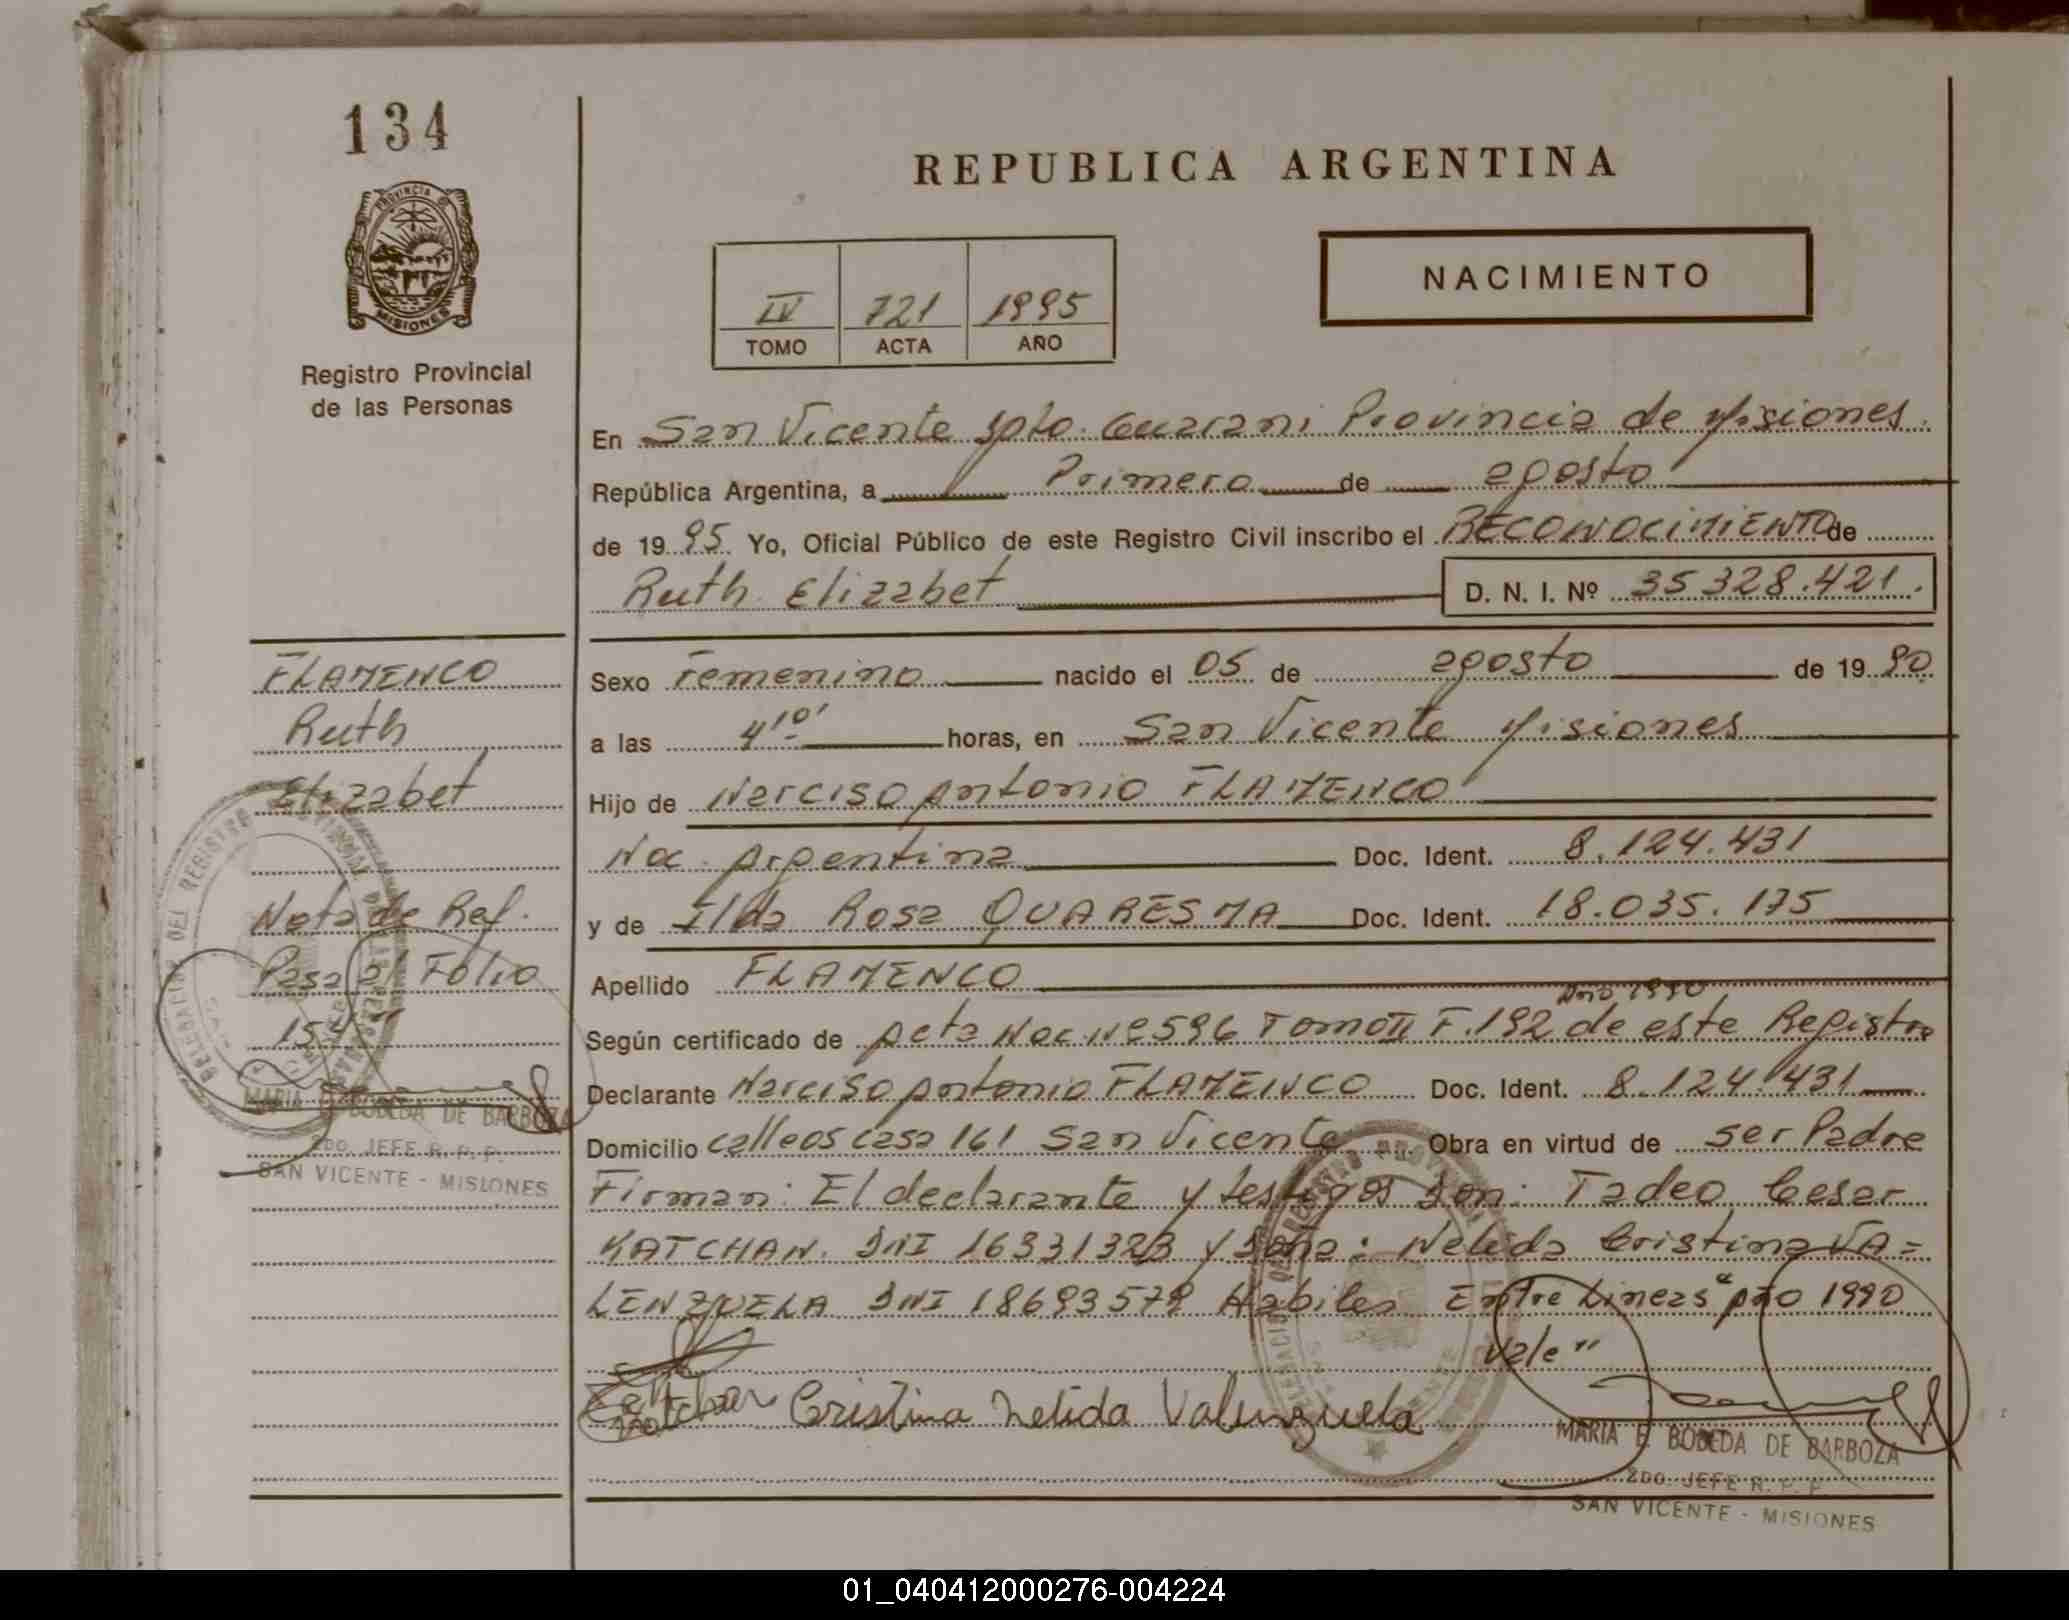 134
PROVINCIA DE
MISIONES
Registro Provincial
de las Personas
REPUBLICA ARGENTINA
NACIMIENTO
IV 721 1995
TOMO ACTA AÑO
En San Vicente Dpto. Guarani Provincia de Misiones.
República Argentina, a Primero de agosto
de 1995. Yo, Oficial Público de este Registro Civil inscribo el RECONOCIMIENTO de
Ruth Elizabet D. N. I. Nº 35328.421.
FLAMENCO
Ruth
Elizabet
Nota de Ref.
Pasa al Folio
MARIA E. BOBEDA DE BARBOZA
2DO. JEFE R. P. P.
SAN VICENTE - MISIONES
Sexo Femenino nacido el 05 de agosto de 1990
a las 4'10' horas, en San Vicente Misiones
Hijo de Narciso Antonio FLAMENCO
Nac. Argentina Doc. Ident. 8.124.431
y de Ilda Rosa QUARESMA Doc. Ident. 18.035.175
Apellido FLAMENCO
Año 1990
Según certificado de Acta Nac Nº 596 Tomo II F.192 de este Registro
Declarante Narciso Antonio FLAMENCO Doc. Ident. 8.124.431
Domicilio calle os casa 161 San Vicente Obra en virtud de ser Padre
Firman: El declarante y testigos Son: Tadeo Cesar
KATCHAN. DNI 16331323 y Doña: Nelida Cristina VA=
LENZUELA DNI 18693579 Habiles Entre Lineas "Año 1990
Vale"
Katchan Cristina Nelida Valenzuela
MARIA E. BOBEDA DE BARBOZA
2DO. JEFE R. P. P.
SAN VICENTE - MISIONES
01_040412000276-004224